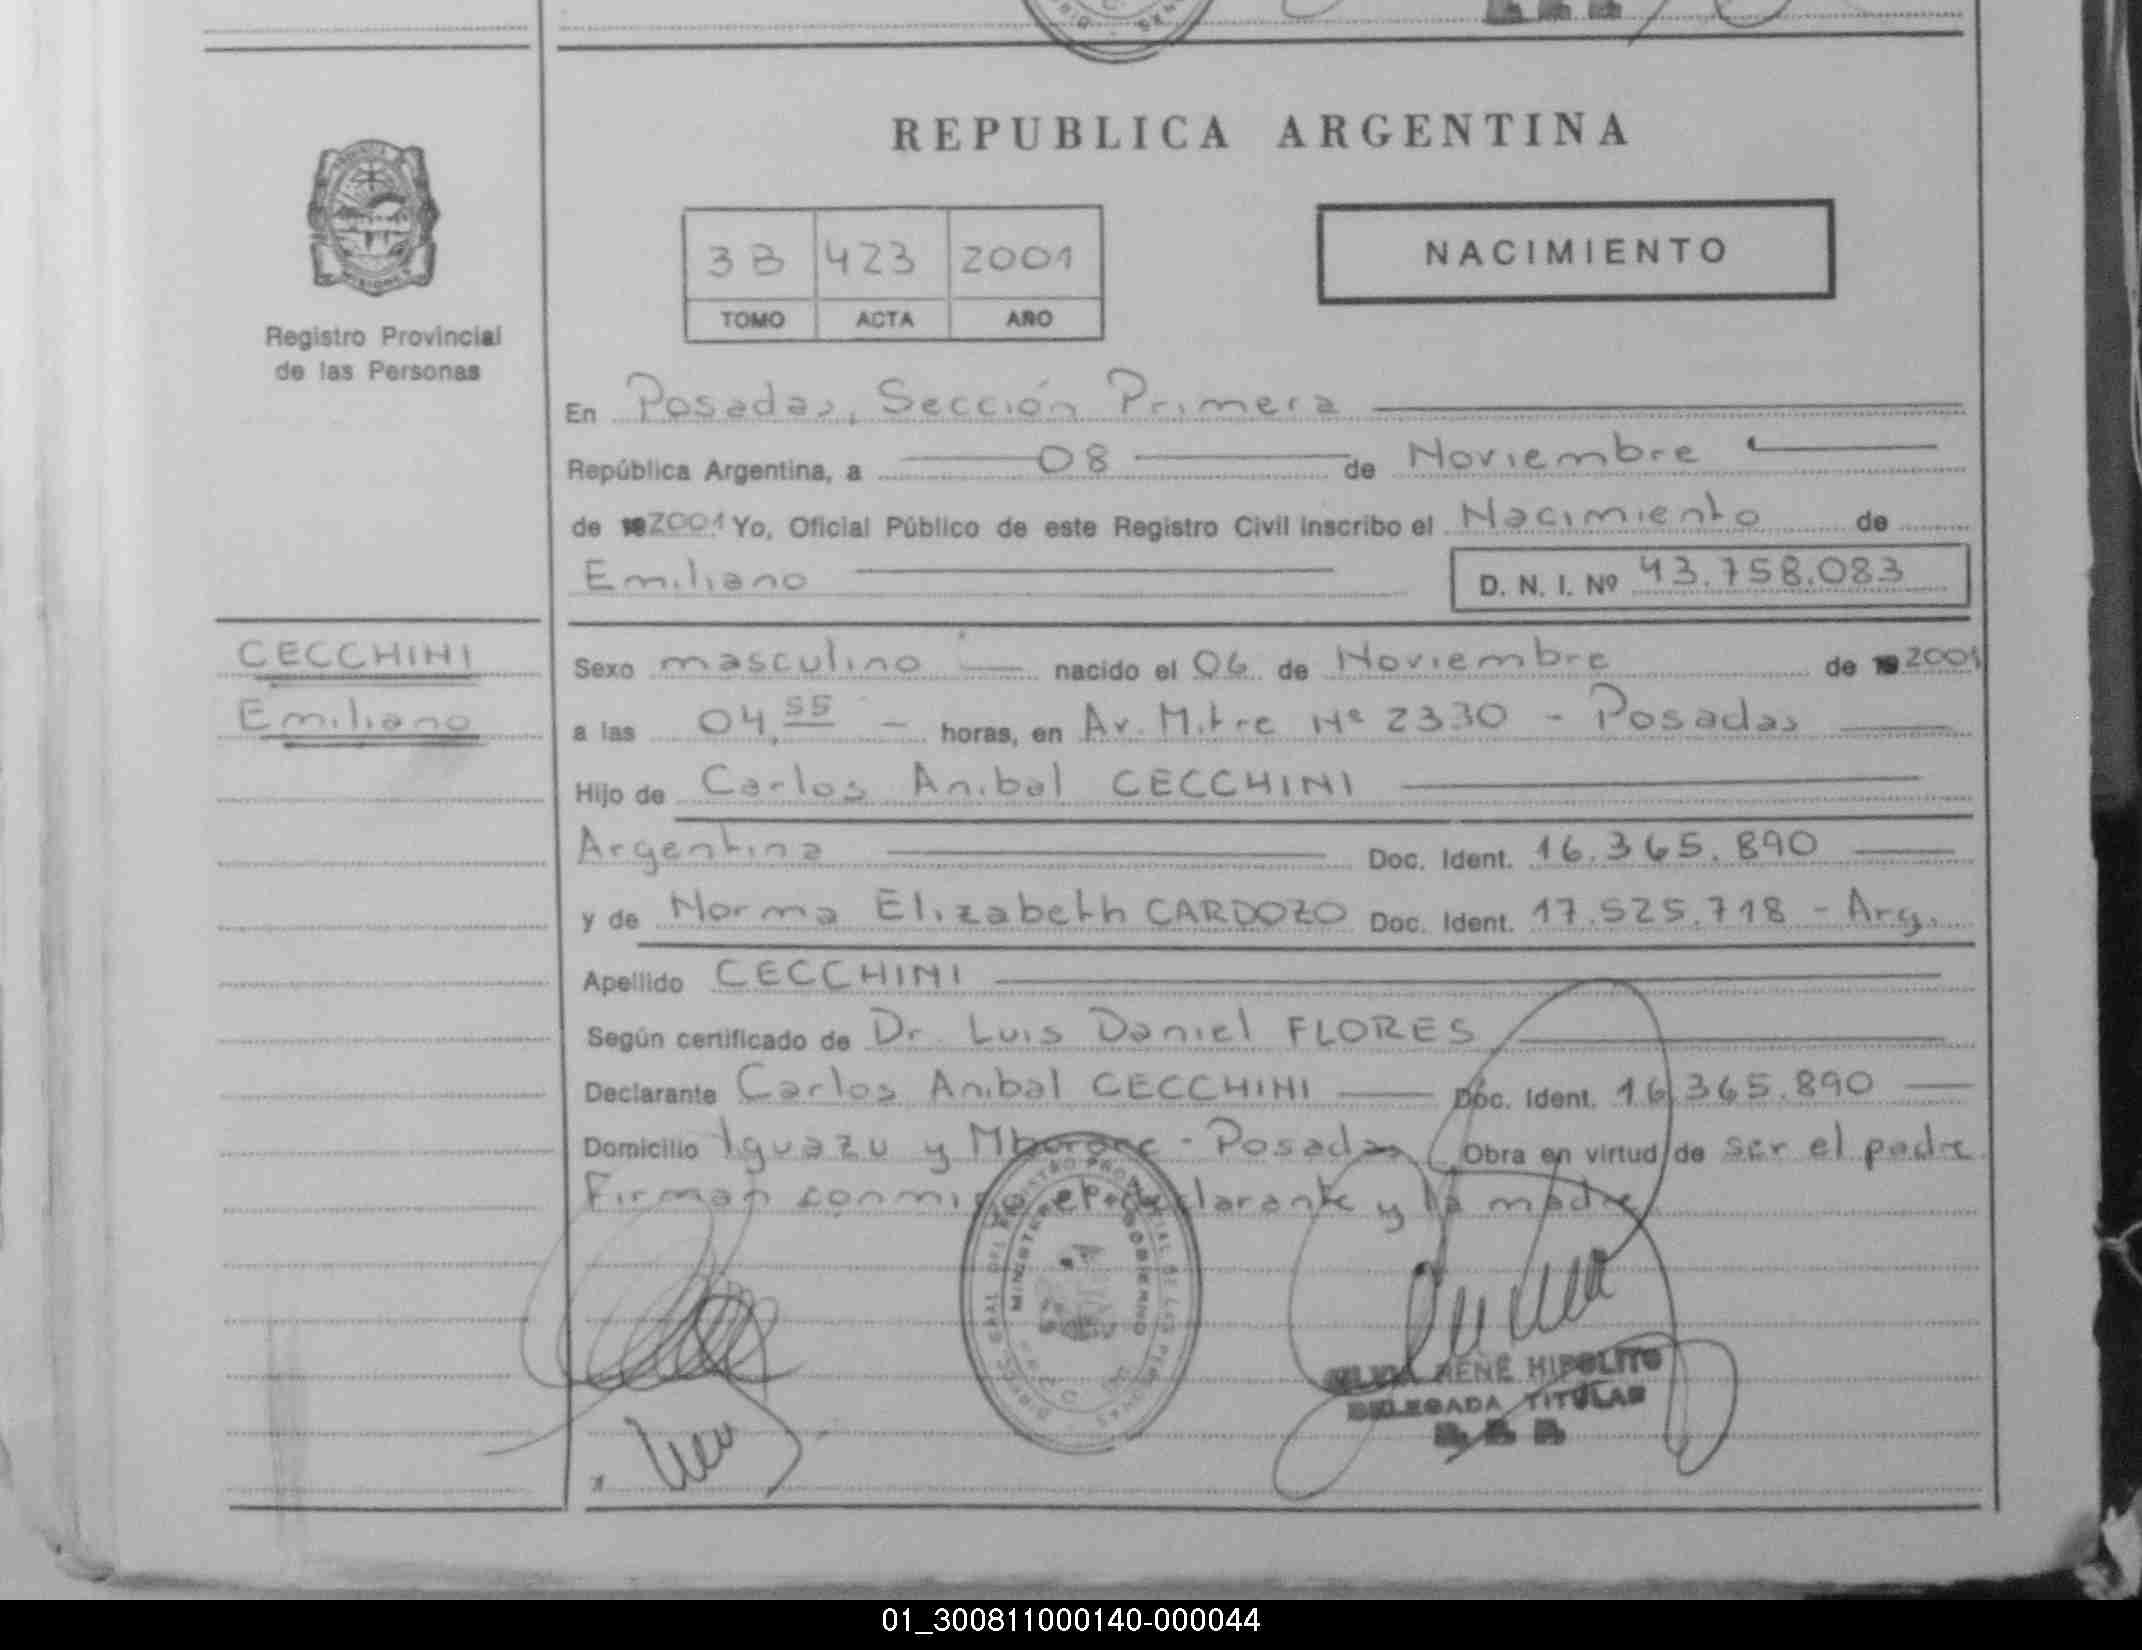 REPUBLICA ARGENTINA
3B 423 2001
TOMO ACTA AÑO
NACIMIENTO
Registro Provincial
de las Personas
En Posadas, Sección Primera
República Argentina, a 08 de Noviembre
de 19 2001 Yo, Oficial Público de este Registro Civil inscribo el Nacimiento de
Emiliano D. N. I. Nº 43.758.083
CECCHINI
Emiliano
Sexo masculino nacido el 06 de Noviembre de 19 2001
a las 04,55 - horas, en Av. Mitre Nº 2330 - Posadas
Hijo de Carlos Anibal CECCHINI
Argentina Doc. Ident. 16.365.890
y de Norma Elizabeth CARDOZO Doc. Ident. 17.525.718 - Arg.
Apellido CECCHINI
Según certificado de Dr. Luis Daniel FLORES
Declarante Carlos Anibal CECCHINI Doc. Ident. 16.365.890
Domicilio Iguazu y - Posadas Obra en virtud de ser el padre
Firman conmigo el declarante y la madre
MINISTERIO GOBIERNO
RENE HIPOLITO
DELEGADA TITULAR
01_300811000140-000044